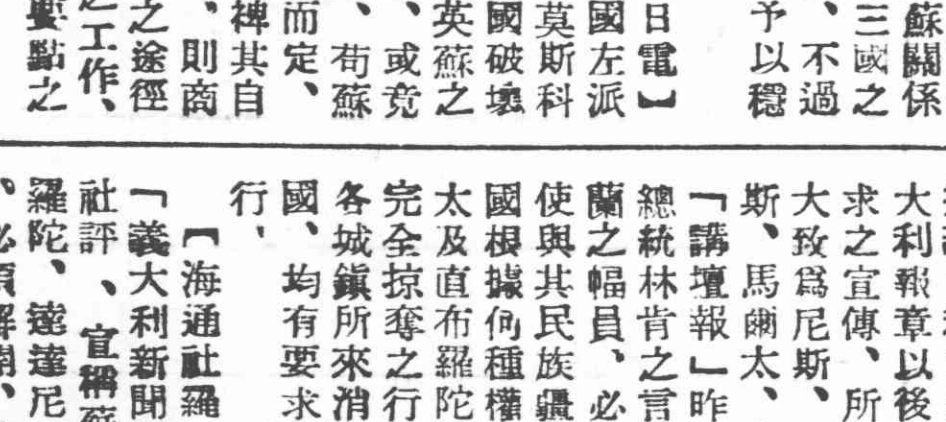 蘇關係
三國之
、不過
予以穩
日電】
國左派
莫斯科
國破壞
英蘇之
、或竟
、苟蘇
而定、
裨其自
、則商
之途徑
之工作、
要點之
大利報章以後
求之宣傳、所
大致爲尼斯、
斯、馬爾太、
「講壇報」昨
總統林肯之言
蘭之幅員、必
使與其民族疆
國根據何種權
太及直布羅陀
完全掠奪之行
各城鎭所來消
國、均有要求
行、
【海通社羅
「義大利新聞
社評、宣稱蘇
羅陀、達達尼
、必須解開、